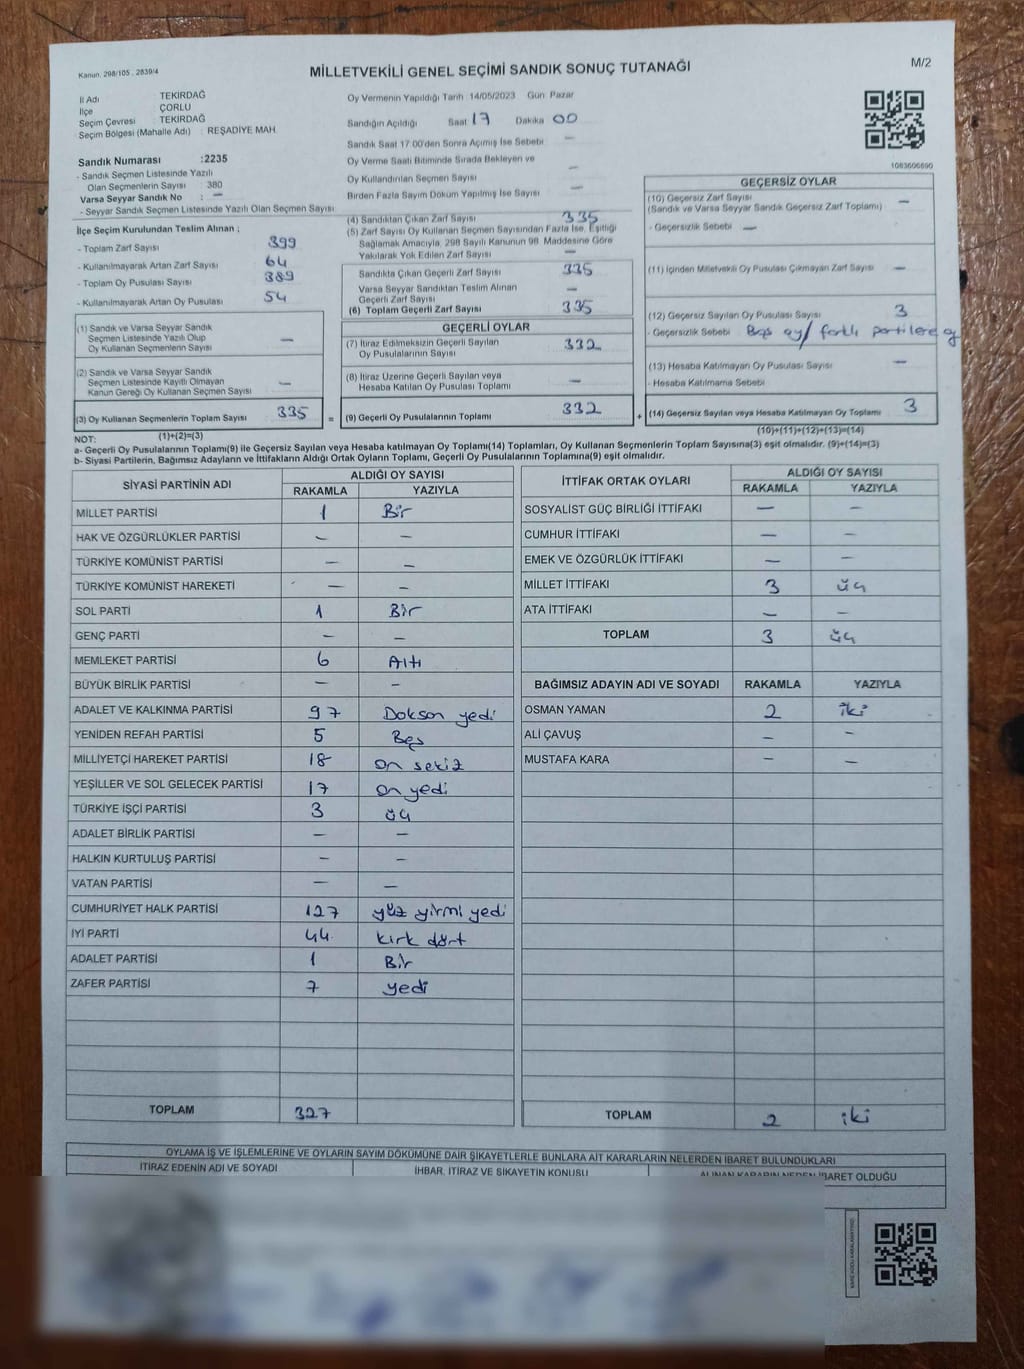 Kanun. 298/105 , 2839/4
MİLLETVEKİLİ GENEL SEÇİMİ SANDIK SONUÇ TUTANAĞI
M/2
İl Adı TEKİRDAĞ
İlçe ÇORLU
Seçim Çevresi TEKİRDAĞ
Seçim Bölgesi (Mahalle Adı) : REŞADİYE MAH.
Sandık Numarası :2235
- Sandık Seçmen Listesinde Yazılı
Olan Seçmenlerin Sayısı : 380
Varsa Seyyar Sandık No : -
- Seyyar Sandık Seçmen Listesinde Yazılı Olan Seçmen Sayısı
İlçe Seçim Kurulundan Teslim Alınan ;
- Toplam Zarf Sayısı 399
- Kullanılmayarak Artan Zarf Sayısı 64
- Toplam Oy Pusulası Sayısı 389
- Kullanılmayarak Artan Oy Pusulası 54
(1) Sandık ve Varsa Seyyar Sandık
Seçmen Listesinde Yazılı Olup
Oy Kullanan Seçmenlerin Sayısı —
(2) Sandık ve Varsa Seyyar Sandık
Seçmen Listesinde Kayıtlı Olmayan
Kanun Gereği Oy Kullanan Seçmen Sayısı —
(3) Oy Kullanan Seçmenlerin Toplam Sayısı 335 =
Oy Vermenin Yapıldığı Tarih 14/05/2023 Gün Pazar
Sandığın Açıldığı Saat 17 Dakika 00
Sandık Saat 17.00'den Sonra Açılmış İse Sebebi —
Oy Verme Saati Bitiminde Sırada Bekleyen ve
Oy Kullandırılan Seçmen Sayısı —
Birden Fazla Sayım Döküm Yapılmış İse Sayısı —
(4) Sandıktan Çıkan Zarf Sayısı 335
(5) Zarf Sayısı Oy Kullanan Seçmen Sayısından Fazla İse, Eşitliği
Sağlamak Amacıyla, 298 Sayılı Kanunun 98. Maddesine Göre
Yakılarak Yok Edilen Zarf Sayısı —
Sandıkta Çıkan Geçerli Zarf Sayısı 335
Varsa Seyyar Sandıktan Teslim Alınan
Geçerli Zarf Sayısı —
(6) Toplam Geçerli Zarf Sayısı 335
GEÇERLİ OYLAR
(7) İtiraz Edilmeksizin Geçerli Sayılan
Oy Pusulalarının Sayısı 332
(8) İtiraz Üzerine Geçerli Sayılan veya
Hesaba Katılan Oy Pusulası Toplamı —
(9) Geçerli Oy Pusulalarının Toplamı 332 +
1083606690
GEÇERSİZ OYLAR
(10) Geçersiz Zarf Sayısı —
(Sandık ve Varsa Seyyar Sandık Geçersiz Zarf Toplamı)
- Geçersizlik Sebebi —
(11) İçinden Milletvekili Oy Pusulası Çıkmayan Zarf Sayısı —
(12) Geçersiz Sayılan Oy Pusulası Sayısı 3
- Geçersizlik Sebebi Boş oy/ farklı partilere oy
(13) Hesaba Katılmayan Oy Pusulası Sayısı —
- Hesaba Katılmama Sebebi
(14) Geçersiz Sayılan veya Hesaba Katılmayan Oy Toplamı 3
(10)+(11)+(12)+(13)=(14)
NOT: (1)+(2)=(3)
a- Geçerli Oy Pusulalarının Toplamı(9) ile Geçersiz Sayılan veya Hesaba katılmayan Oy Toplamı(14) Toplamları, Oy Kullanan Seçmenlerin Toplam Sayısına(3) eşit olmalıdır. (9)+(14)=(3)
b- Siyasi Partilerin, Bağımsız Adayların ve İttifakların Aldığı Ortak Oyların Toplamı, Geçerli Oy Pusulalarının Toplamına(9) eşit olmalıdır.
SİYASİ PARTİNİN ADI ALDIĞI OY SAYISI
RAKAMLA YAZIYLA
MİLLET PARTİSİ 1 Bir
HAK VE ÖZGÜRLÜKLER PARTİSİ — —
TÜRKİYE KOMÜNİST PARTİSİ — —
TÜRKİYE KOMÜNİST HAREKETİ — —
SOL PARTİ 1 Bir
GENÇ PARTİ — —
MEMLEKET PARTİSİ 6 Altı
BÜYÜK BİRLİK PARTİSİ — —
ADALET VE KALKINMA PARTİSİ 97 Dokson yedi
YENİDEN REFAH PARTİSİ 5 Beş
MİLLİYETÇİ HAREKET PARTİSİ 18 on sekiz
YEŞİLLER VE SOL GELECEK PARTİSİ 17 on yedi
TÜRKİYE İŞÇİ PARTİSİ 3 üç
ADALET BİRLİK PARTİSİ — —
HALKIN KURTULUŞ PARTİSİ — —
VATAN PARTİSİ — —
CUMHURİYET HALK PARTİSİ 127 yüz yirmi yedi
İYİ PARTİ 44 kırk dört
ADALET PARTİSİ 1 Bir
ZAFER PARTİSİ 7 yedi
TOPLAM 327
İTTİFAK ORTAK OYLARI ALDIĞI OY SAYISI
RAKAMLA YAZIYLA
SOSYALİST GÜÇ BİRLİĞİ İTTİFAKI — —
CUMHUR İTTİFAKI — —
EMEK VE ÖZGÜRLÜK İTTİFAKI — —
MİLLET İTTİFAKI 3 üç
ATA İTTİFAKI — —
TOPLAM 3 üç
BAĞIMSIZ ADAYIN ADI VE SOYADI RAKAMLA YAZIYLA
OSMAN YAMAN 2 iki
ALİ ÇAVUŞ — —
MUSTAFA KARA — —
TOPLAM 2 iki
OYLAMA İŞ VE İŞLEMLERİNE VE OYLARIN SAYIM DÖKÜMÜNE DAİR ŞİKAYETLERLE BUNLARA AİT KARARLARIN NELERDEN İBARET BULUNDUKLARI
İTİRAZ EDENİN ADI VE SOYADI İHBAR, İTİRAZ VE ŞİKAYETİN KONUSU ALINAN KARARIN NEDEN İBARET OLDUĞU